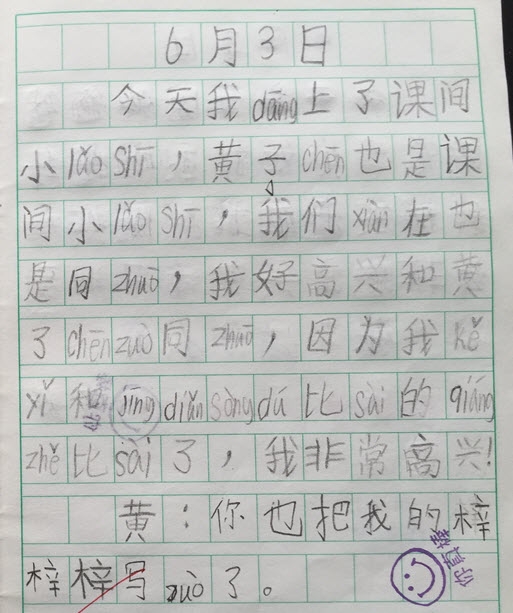 6月3日
今天我dāng上了课间
小lǎo shī,黄子chén也是课
间小lǎo shī,我们xiàn在也
是同zhuō,我好高兴和黄
子chēn zuò同zhuō,因为我kě
yǐ和jīng diǎn sòng dú比sài的qiáng
zhě比sài了,我非常高兴!
黄:你也把我的梓
梓梓写zuò了。
你真棒